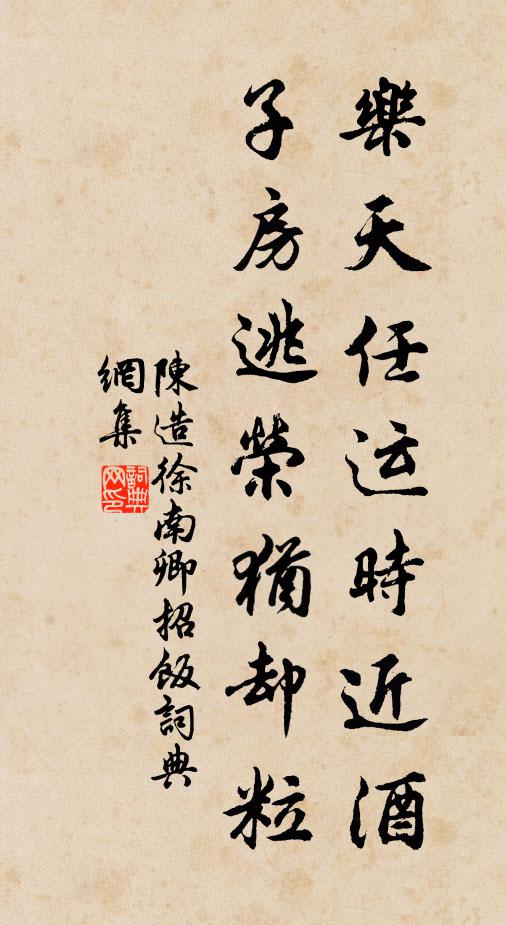 樂天任运時近酒
子房逃榮猶却粒
陳造徐南卿招飯詞典
網集
詞典
网印